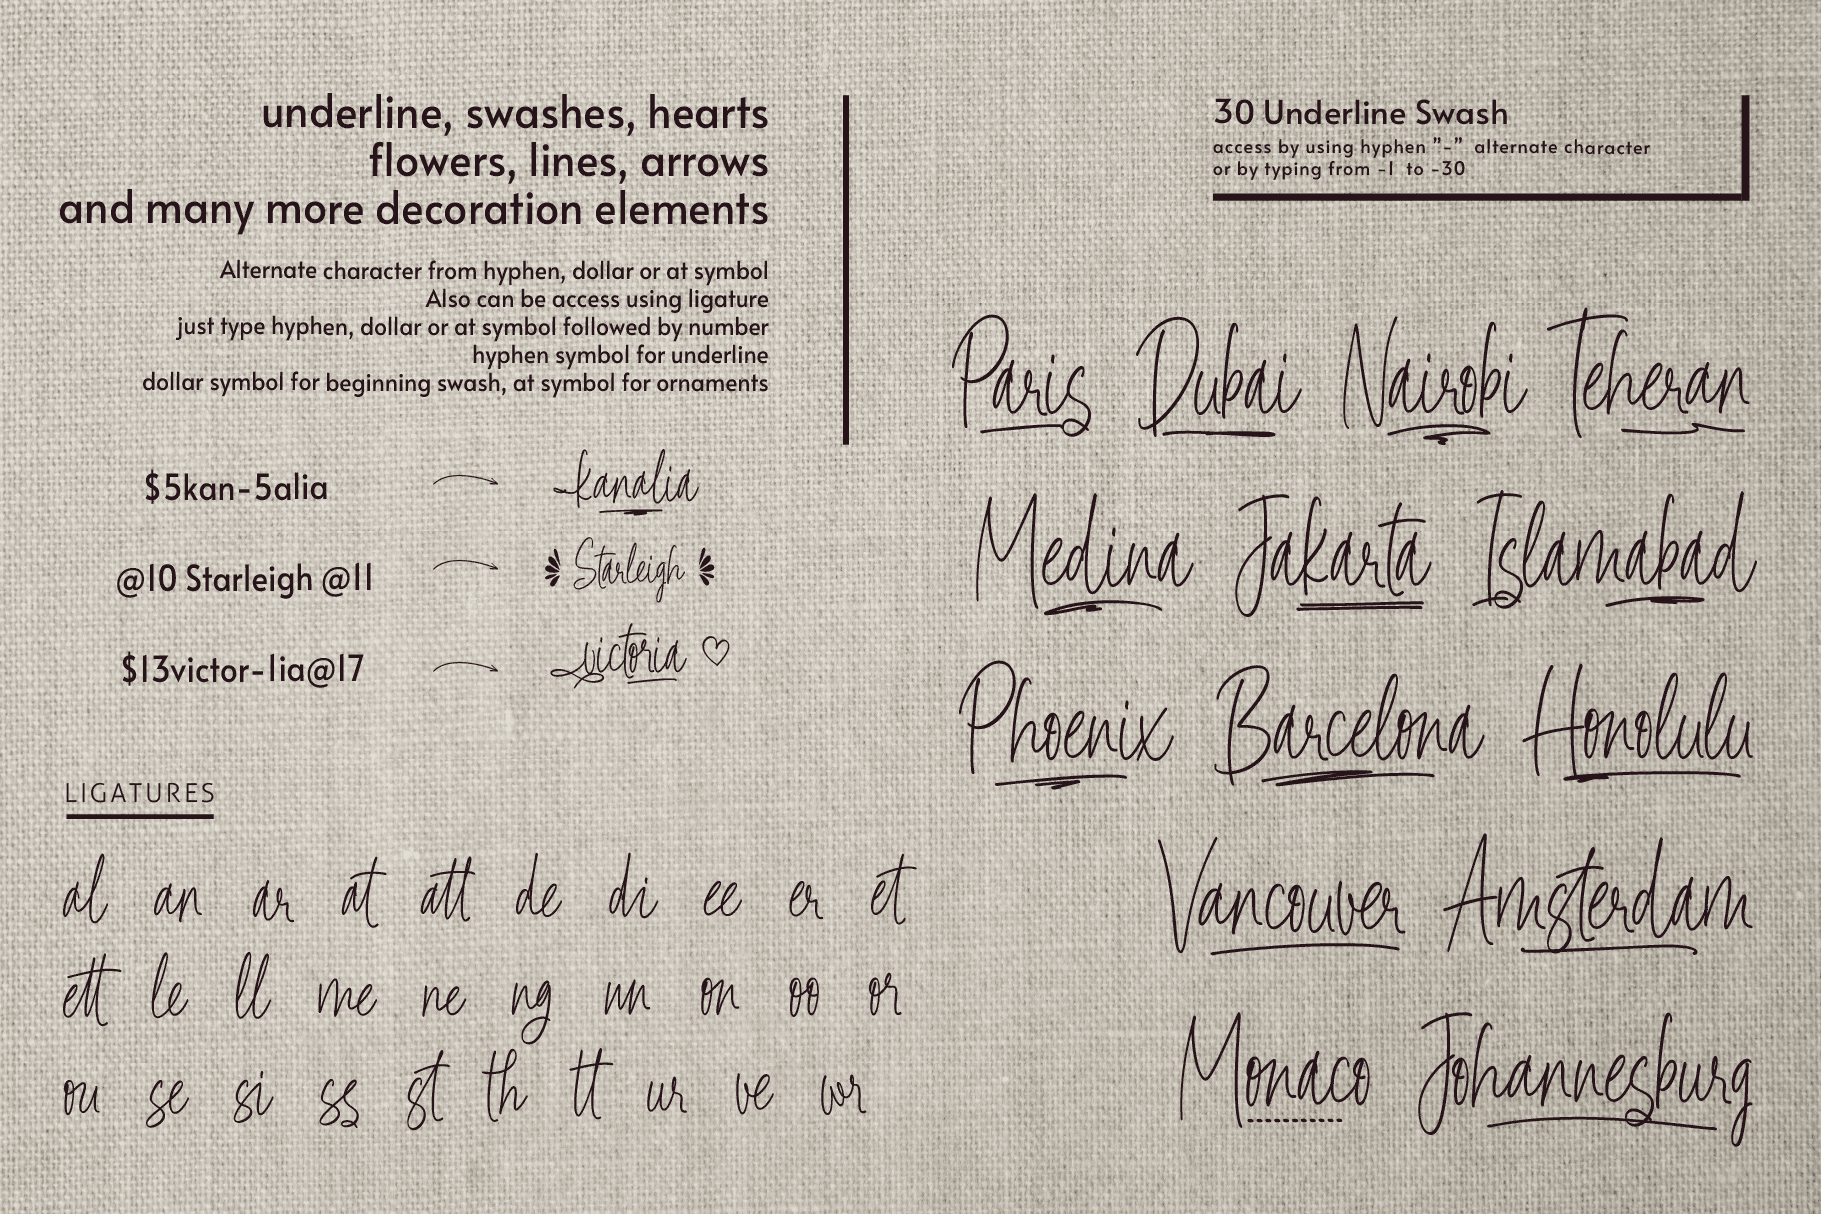 underline, swashes, hearts
flowers, lines, arrows
and many more decoration elements
Alternate character from hyphen, dollar or at symbol
Also can be access using ligature
just type hyphen, dollar or at symbol followed by number
hyphen symbol for underline
dollar symbol for beginning swash, at symbol for ornaments
$5kan-5alia kanalia
@10 Starleigh @11 Starleigh
$13victor-1ia@17 victoria
LIGATURES
al an ar at att de di ee er et
ett le ll me ne ng nn on oo or
ou se si ss st th tt ur ve wr
30 Underline Swash
access by using hyphen "-" alternate character
or by typing from -1 to -30
Paris Dubai Nairobi Teheran
Medina Jakarta Islamabad
Phoenix Barcelona Honolulu
Vancouver Amsterdam
Monaco Johannesburg